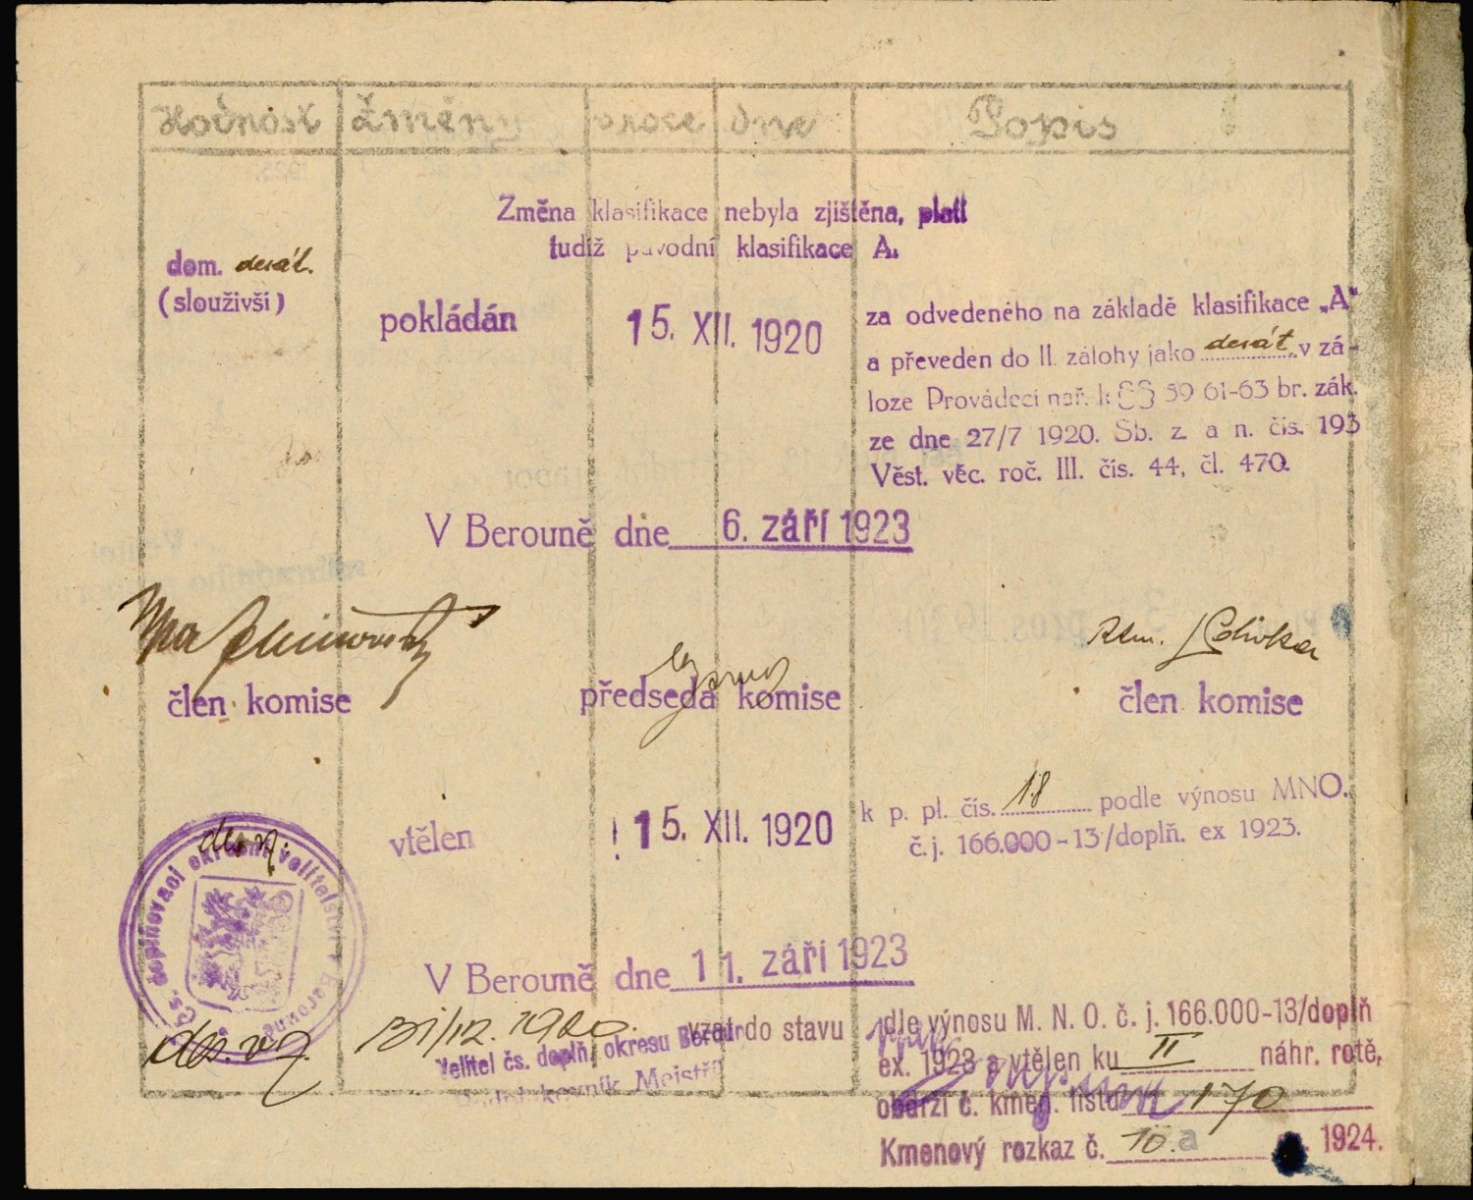 Hodnost změny roce dne Popis
Změna klasifikace nebyla zjištěna, platí
tudíž původní klasifikace A.
dom. desát.
(sloužívší)
pokládán 15. XII. 1920
za odvedeného na základě klasifikace „A“
a převeden do II. zálohy jako desát. v zá-
loze Prováděcí nař. k §§ 59 61-63 br. zák.
ze dne 27/7 1920. Sb. z. a n. čís. 193
Věst. věc. roč. III. čís. 44, čl. 470.
V Berouně dne 6. září 1923
člen komise předseda komise člen komise
vtělen 15. XII. 1920
k p. pl. čís. 18 podle výnosu MNO.
č. j. 166.000-13/doplň. ex 1923.
Čs. doplňovací okresní velitelství v Berouně
V Berouně dne 11. září 1923
31/12. 1920. vzat do stavu
Velitel čs. doplň. okresu Beroun
Podplukovník Meistř
dle výnosu M. N. O. č. j. 166.000-13/doplň
ex. 1923 a vtělen ku II náhr. rotě,
obdrží č. kmen. listu 170
Kmenový rozkaz č. 10.a 1924.